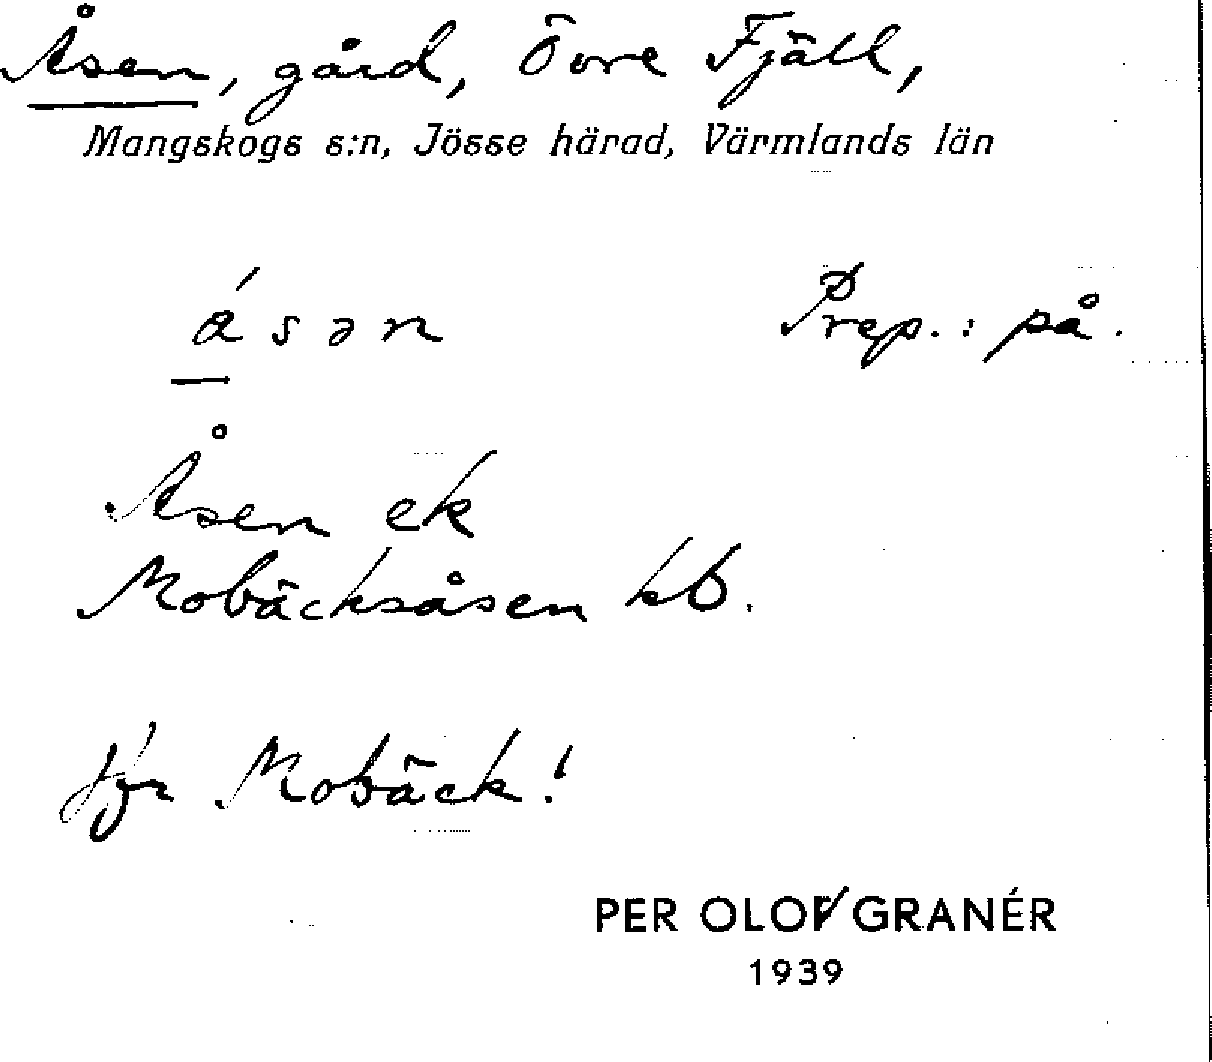 Åsen, gård, Övre Fjäll,
Mangskogs s:n, Jösse härad, Värmlands län
á s ə n Prep.: på.
Åsen ek
Mobäcksåsen kb.
Jfr Mobäck!
PER OLOV GRANÉR
1939